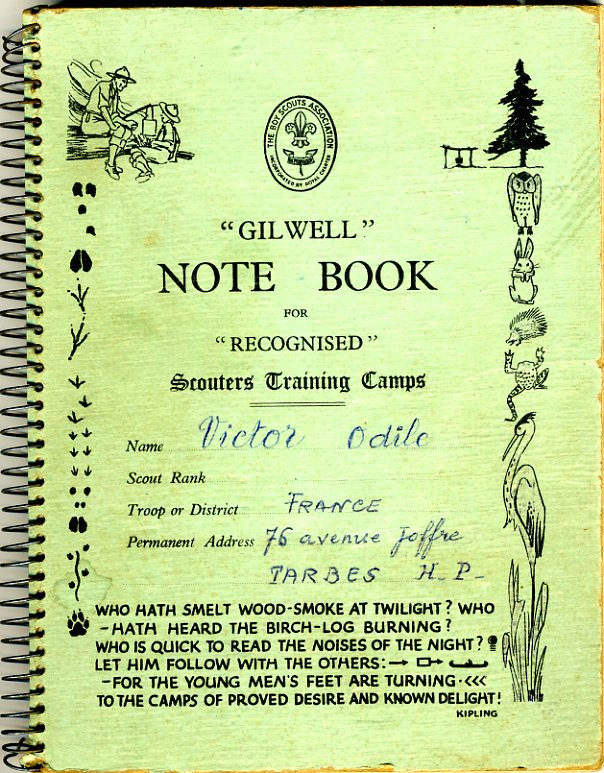 THE BOY SCOUTS ASSOCIATION
INCORPORATED BY ROYAL CHARTER
"GILWELL"
NOTE BOOK
FOR
"RECOGNISED"
Scouters Training Camps
Name Victor Odile
Scout Rank
Troop or District FRANCE
Permanent Address 76 avenue Joffre
TARBES H.P-
WHO HATH SMELT WOOD-SMOKE AT TWILIGHT? WHO
-HATH HEARD THE BIRCH-LOG BURNING?
WHO IS QUICK TO READ THE NOISES OF THE NIGHT?
LET HIM FOLLOW WITH THE OTHERS:
-FOR THE YOUNG MEN'S FEET ARE TURNING
TO THE CAMPS OF PROVED DESIRE AND KNOWN DELIGHT!
KIPLING